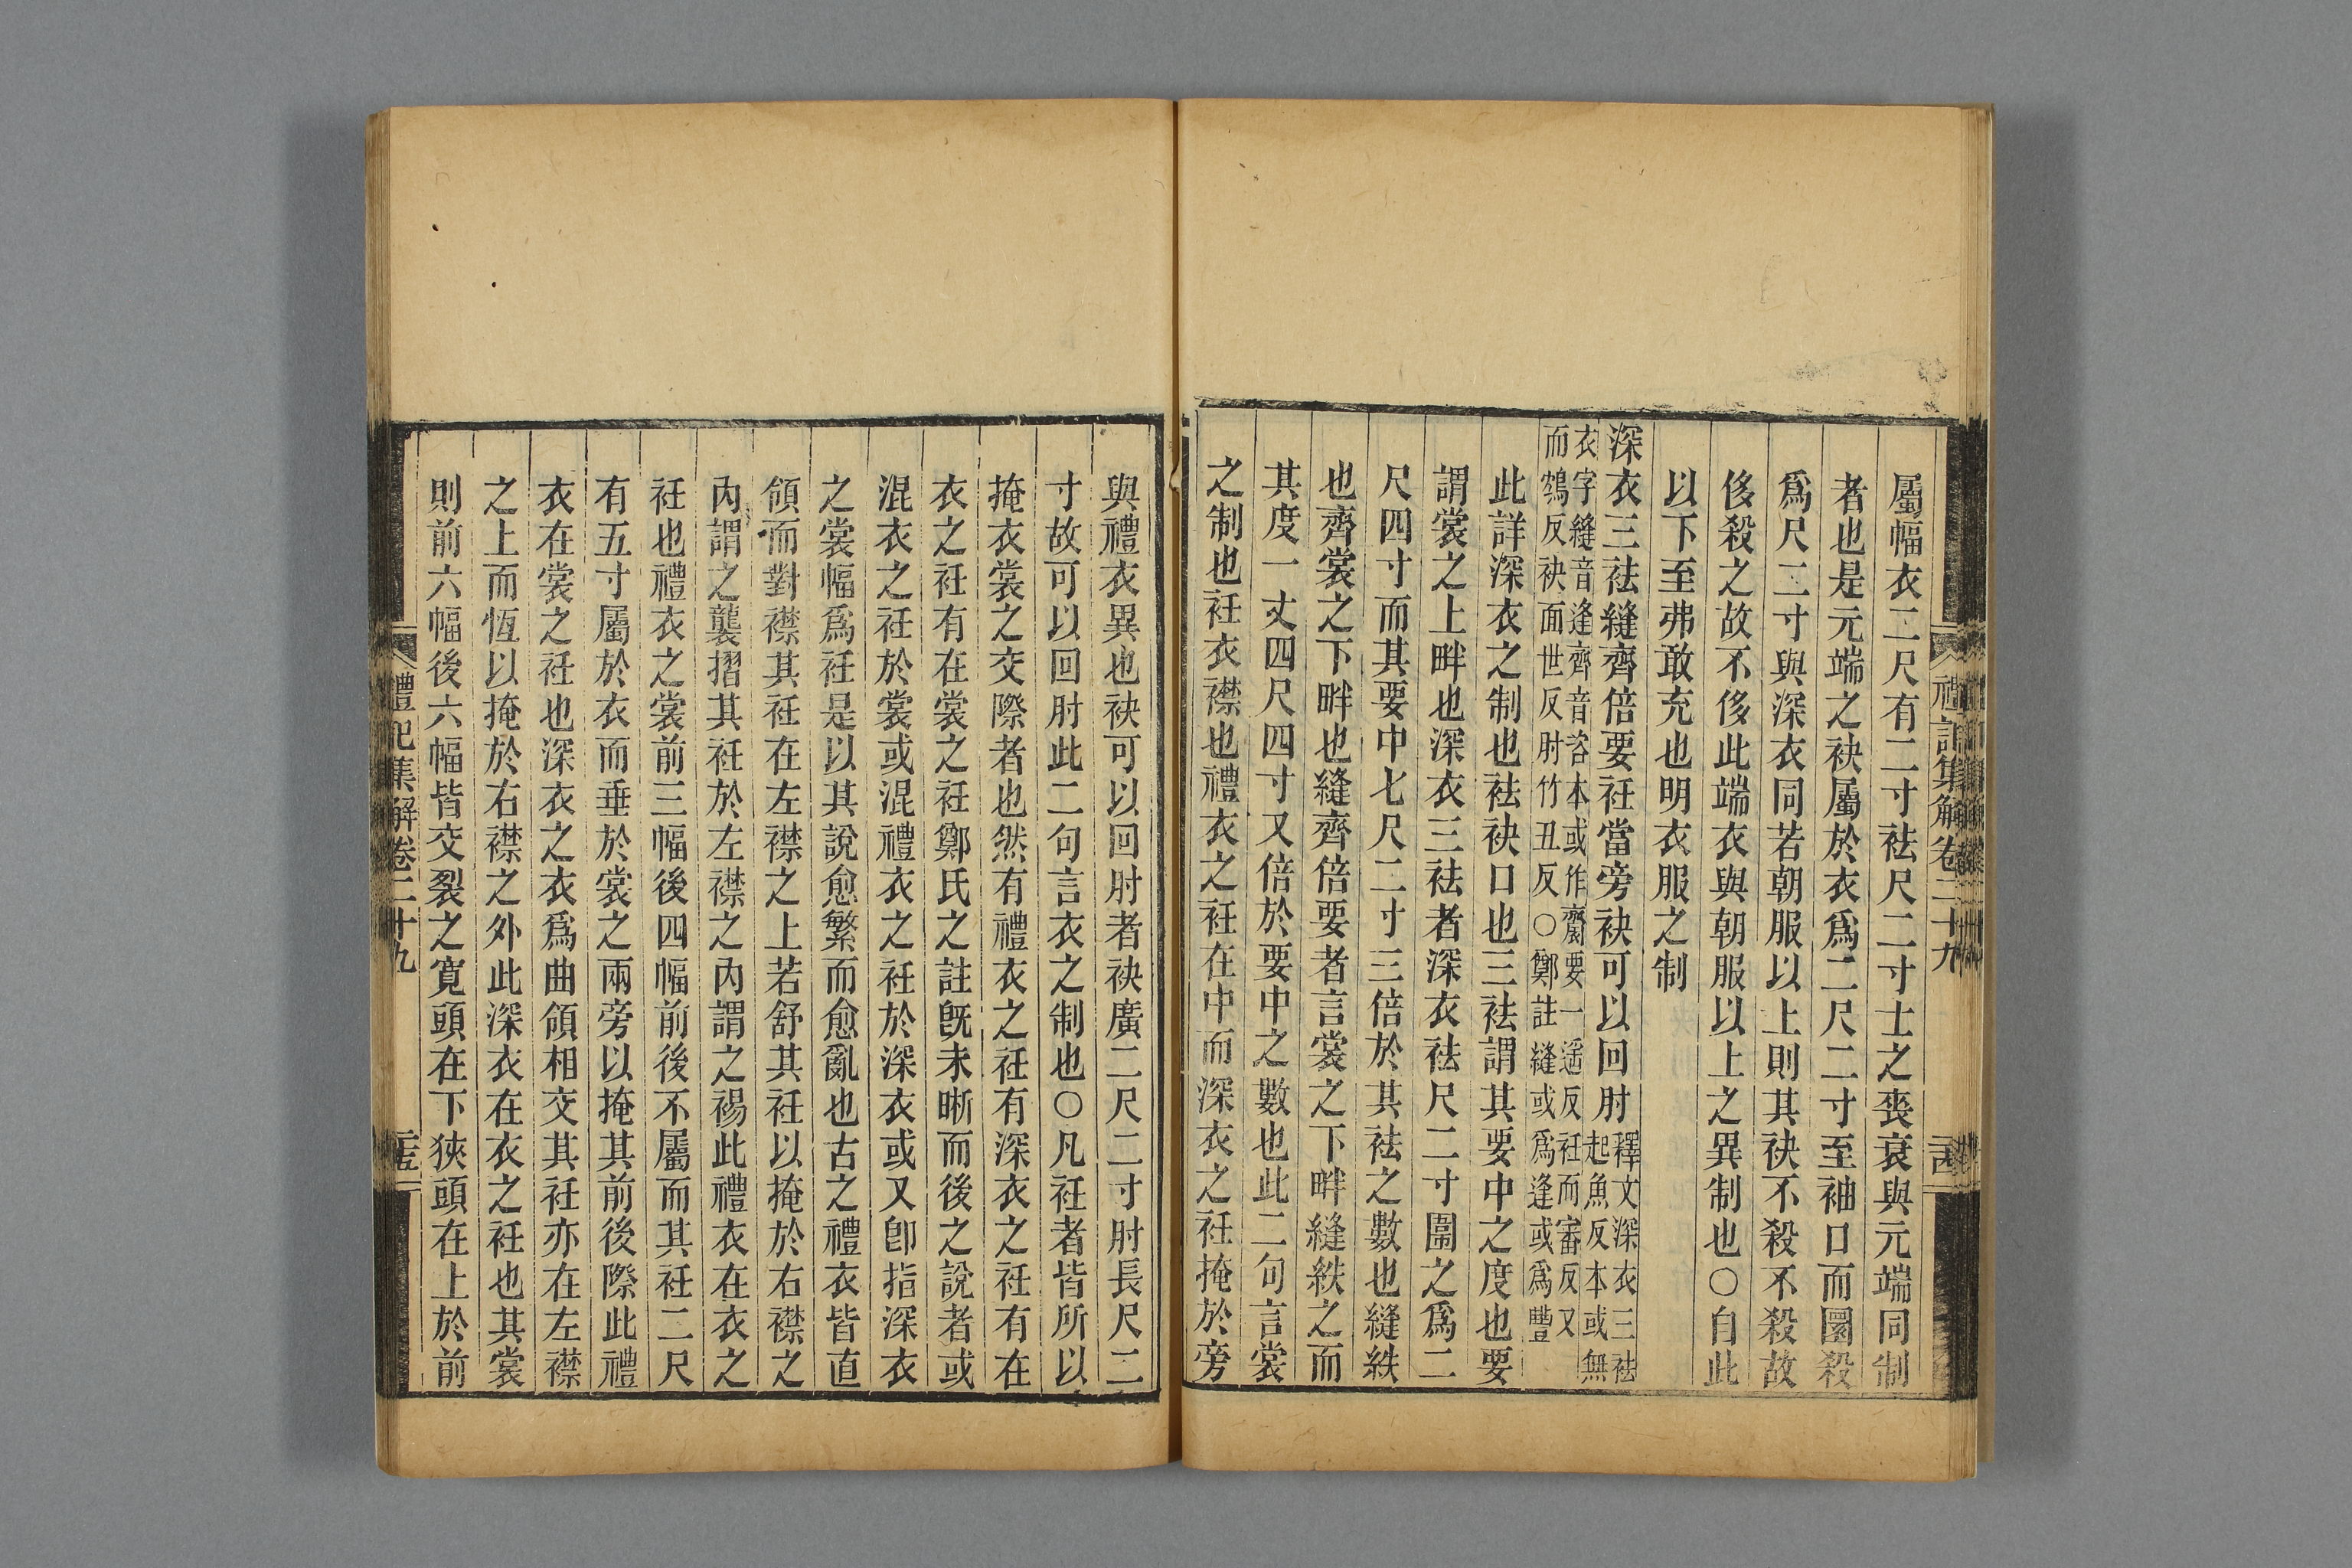 禮記集解卷二十九
二十四
屬幅衣二尺有二寸袪尺二寸士之喪衰與元端同制
者也是元端之袂屬於衣爲二尺二寸至袖口而圜殺
爲尺二寸與深衣同若朝服以上則其袂不殺不殺故
侈殺之故不侈此端衣與朝服以上之異制也○自此
以下至弗敢充也明衣服之制
深衣三袪縫齊倍要衽當旁袂可以回肘釋文深衣三袪
起魚反本或無
衣字縫音逢齊音咨本或作齋要一遥反衽而審反又
而鴆反袂面世反肘竹丑反○鄭註縫或爲逢或爲豐
此詳深衣之制也袪袂口也三袪謂其要中之度也要
謂裳之上畔也深衣三袪者深衣袪尺二寸圍之爲二
尺四寸而其要中七尺二寸三倍於其袪之數也縫紩
也齊裳之下畔也縫齊倍要者言裳之下畔縫紩之而
其度一丈四尺四寸又倍於要中之數也此二句言裳
之制也衽衣襟也禮衣之衽在中而深衣之衽掩於旁
與禮衣異也袂可以回肘者袂廣二尺二寸肘長尺二
寸故可以回肘此二句言衣之制也○凡衽者皆所以
掩衣裳之交際者也然有禮衣之衽有深衣之衽有在
衣之衽有在裳之衽鄭氏之註旣未晰而後之說者或
混衣之衽於裳或混禮衣之衽於深衣或又卽指深衣
之裳幅爲衽是以其說愈繁而愈亂也古之禮衣皆直
領而對襟其衽在左襟之上若舒其衽以掩於右襟之
內謂之襲摺其衽於左襟之內謂之裼此禮衣在衣之
衽也禮衣之裳前三幅後四幅前後不屬而其衽二尺
有五寸屬於衣而垂於裳之兩旁以掩其前後際此禮
衣在裳之衽也深衣之衣爲曲領相交其衽亦在左襟
之上而恆以掩於右襟之外此深衣在衣之衽也其裳
則前六幅後六幅皆交裂之寬頭在下狹頭在上於前
禮記集解卷二十九
二十五